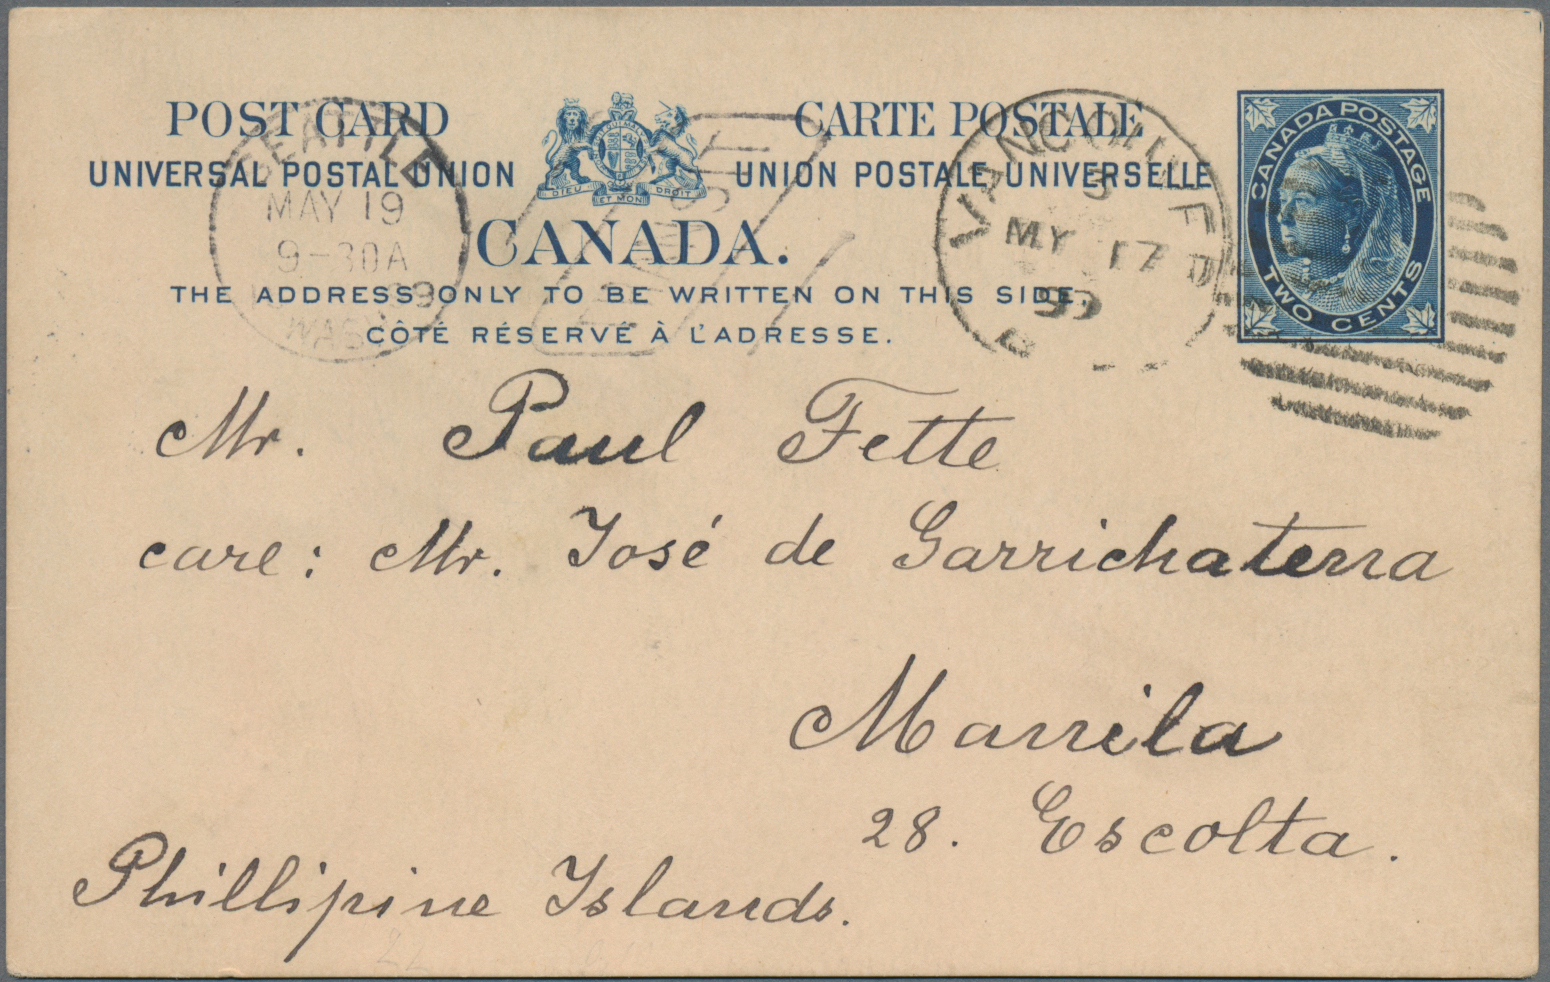 POST CARD CARTE POSTALE
UNIVERSAL POSTAL UNION UNION POSTALE UNIVERSELLE
DIEU ET MON DROIT
CANADA.
THE ADDRESS ONLY TO BE WRITTEN ON THIS SIDE.
CÔTÉ RÉSERVÉ À L'ADRESSE.
CANADA POSTAGE
TWO CENTS
SEATTLE
MAY 19
9-30A
WASH
VANCOUVER
5
MY 17
99
B
Mr. Paul Fette
care: Mr. José de Garrichaterra
Manila
28. Escolta.
Phillipine Islands.